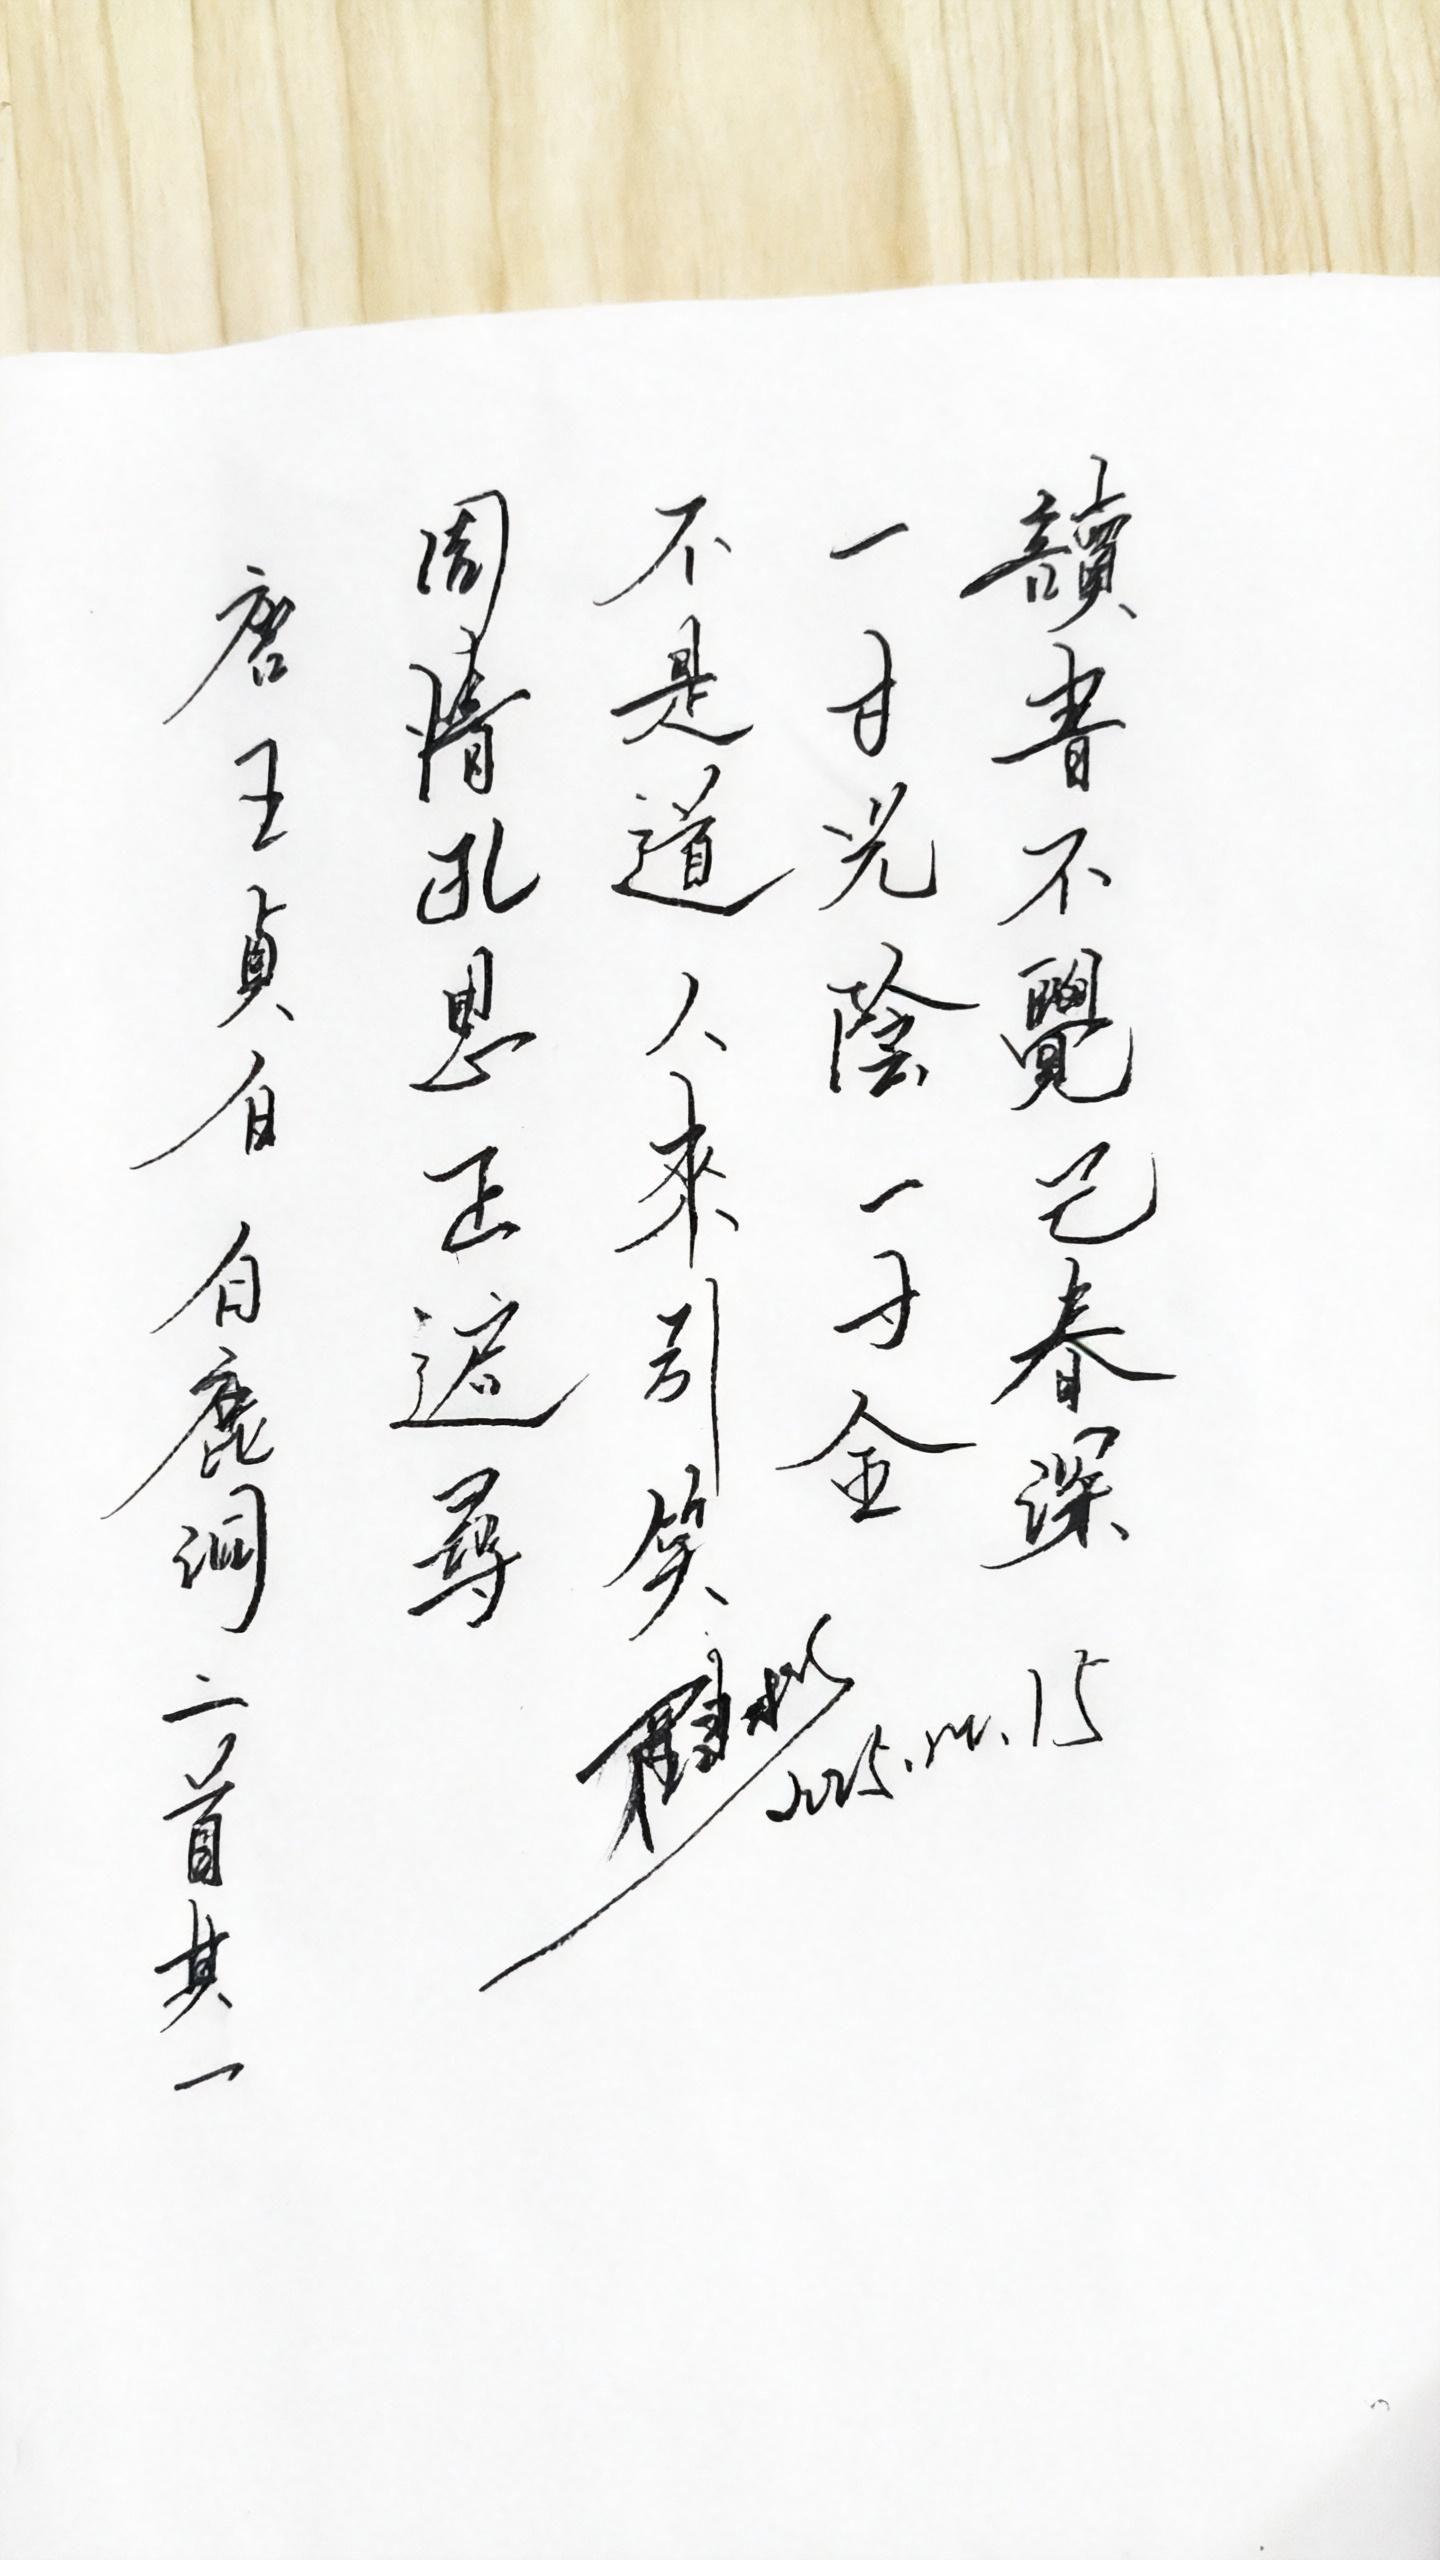 讀書不覺已春深
一寸光陰一寸金
不是道人來引笑
周情孔思正追尋
唐王貞白 白鹿洞二首其一